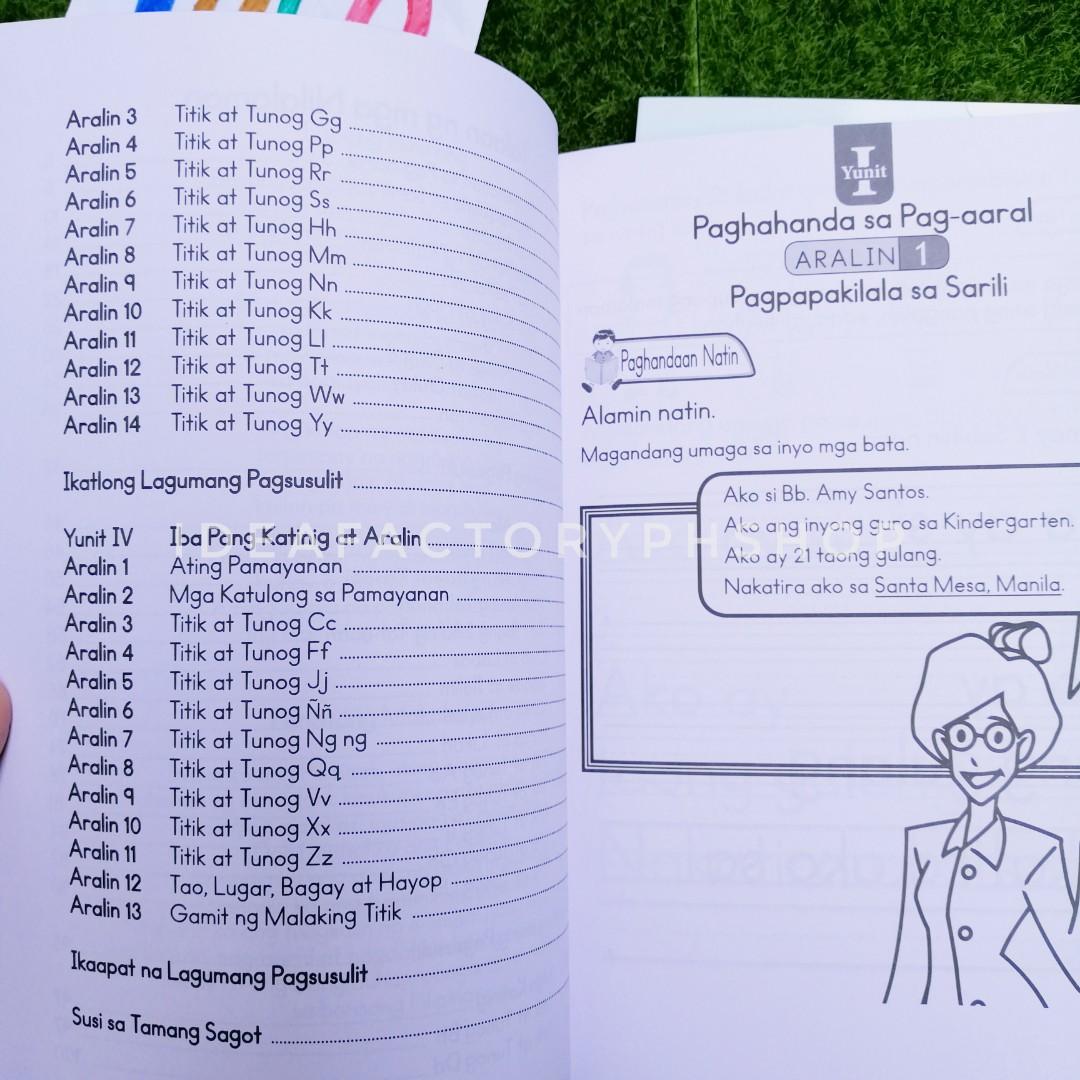 Aralin 3 Titik at Tunog Gg
Aralin 4 Titik at Tunog Pp
Aralin 5 Titik at Tunog Rr
Aralin 6 Titik at Tunog Ss
Aralin 7 Titik at Tunog Hh
Aralin 8 Titik at Tunog Mm
Aralin 9 Titik at Tunog Nn
Aralin 10 Titik at Tunog Kk
Aralin 11 Titik at Tunog Ll
Aralin 12 Titik at Tunog Tt
Aralin 13 Titik at Tunog Ww
Aralin 14 Titik at Tunog Yy
Ikatlong Lagumang Pagsusulit
Yunit IV Iba Pang Katinig at Aralin
Aralin 1 Ating Pamayanan
Aralin 2 Mga Katulong sa Pamayanan
Aralin 3 Titik at Tunog Cc
Aralin 4 Titik at Tunog Ff
Aralin 5 Titik at Tunog Jj
Aralin 6 Titik at Tunog Ññ
Aralin 7 Titik at Tunog Ng ng
Aralin 8 Titik at Tunog Qq
Aralin 9 Titik at Tunog Vv
Aralin 10 Titik at Tunog Xx
Aralin 11 Titik at Tunog Zz
Aralin 12 Tao, Lugar, Bagay at Hayop
Aralin 13 Gamit ng Malaking Titik
Ikaapat na Lagumang Pagsusulit
Susi sa Tamang Sagot
I
Yunit
Paghahanda sa Pag-aaral
ARALIN 1
Pagpapakilala sa Sarili
Paghandaan Natin
Alamin natin.
Magandang umaga sa inyo mga bata.
Ako si Bb. Amy Santos.
Ako ang inyong guro sa Kindergarten.
Ako ay 21 taong gulang.
Nakatira ako sa Santa Mesa, Manila.
IDEAFACTORYPHSHOP